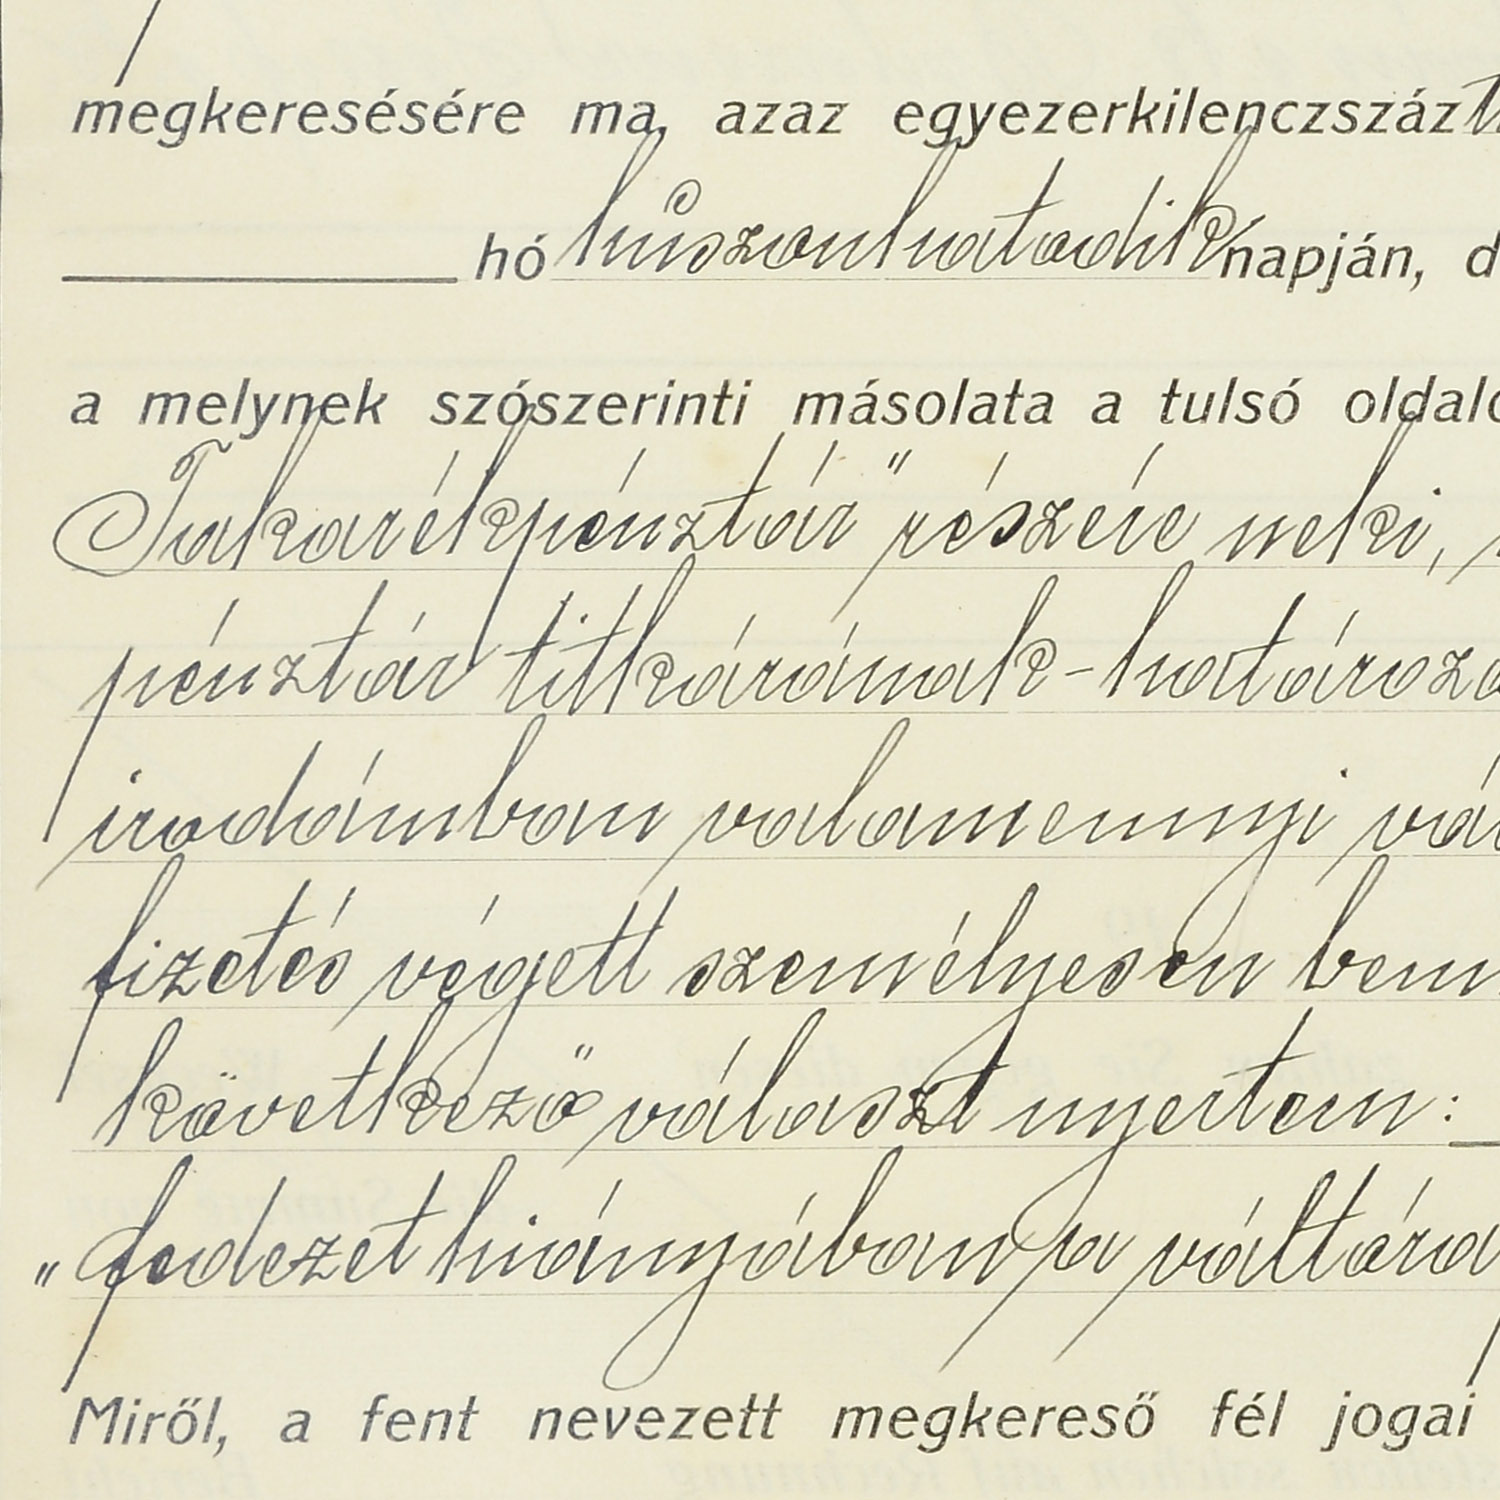 megkeresésére ma, azaz egyezerkilenczszáz
hó huszonhatodik napján,
a melynek szószerinti másolata a tulsó
Takarékpénztár" részére neki,
pénztár titkárának - határoza
irodámban valamennyi vá
fizetés végett személyesen bem
következő választ nyertem:
"fedezet hiányában a váltóra
Miről, a fent nevezett megkereső fél jogai